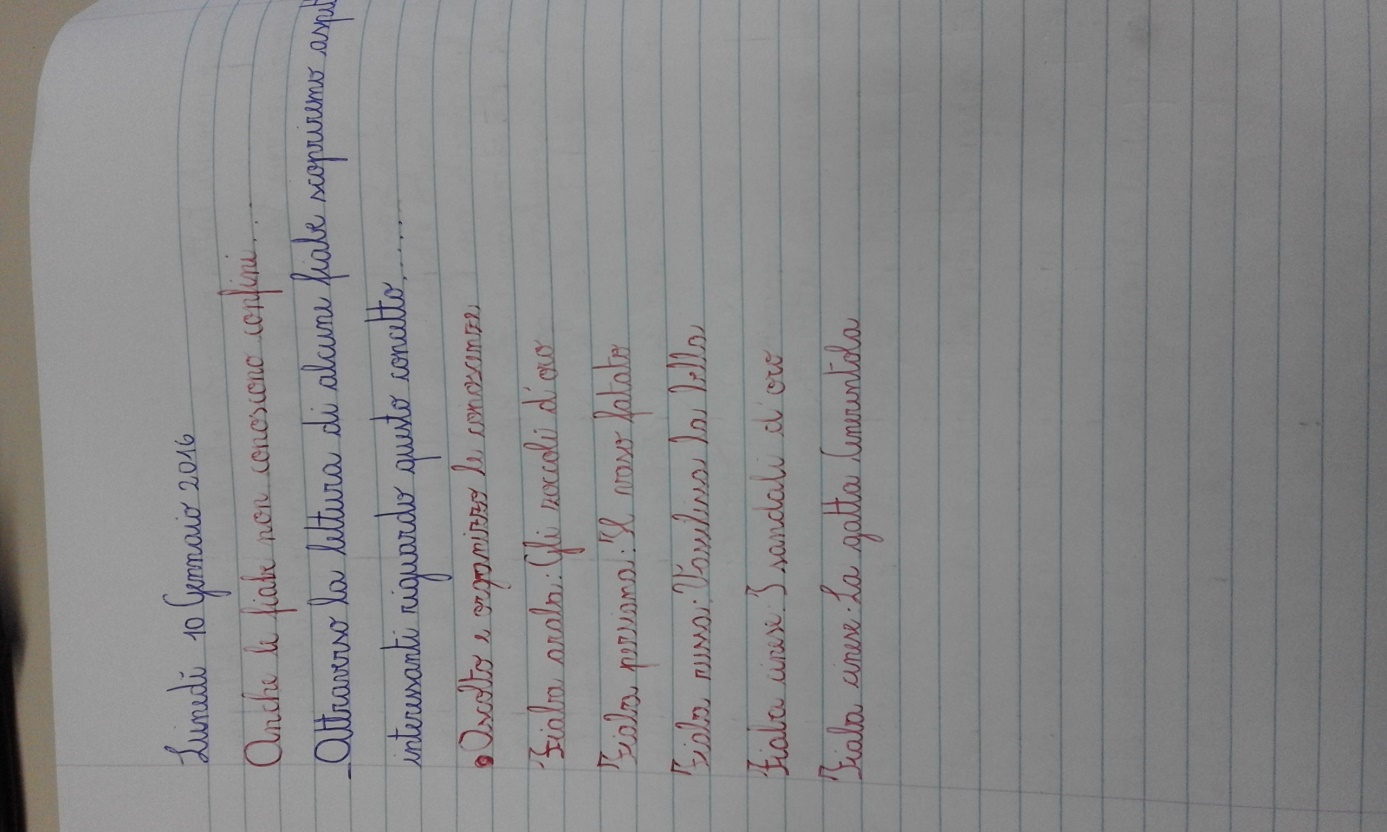 Lunedì 10 Gennaio 2016
Anche le fiabe non conoscono confini...
Attraverso la lettura di alcune fiabe scopriremo aspetti
interessanti riguardo questo concetto......
• Ascolto e organizzo le conoscenze
Fiaba araba: Gli zoccoli d'oro
Fiaba persiana: Il vaso fatato
Fiaba russa: Vassilissa la bella
Fiaba cinese: I sandali d'oro
Fiaba cinese: La gatta Cenerentola